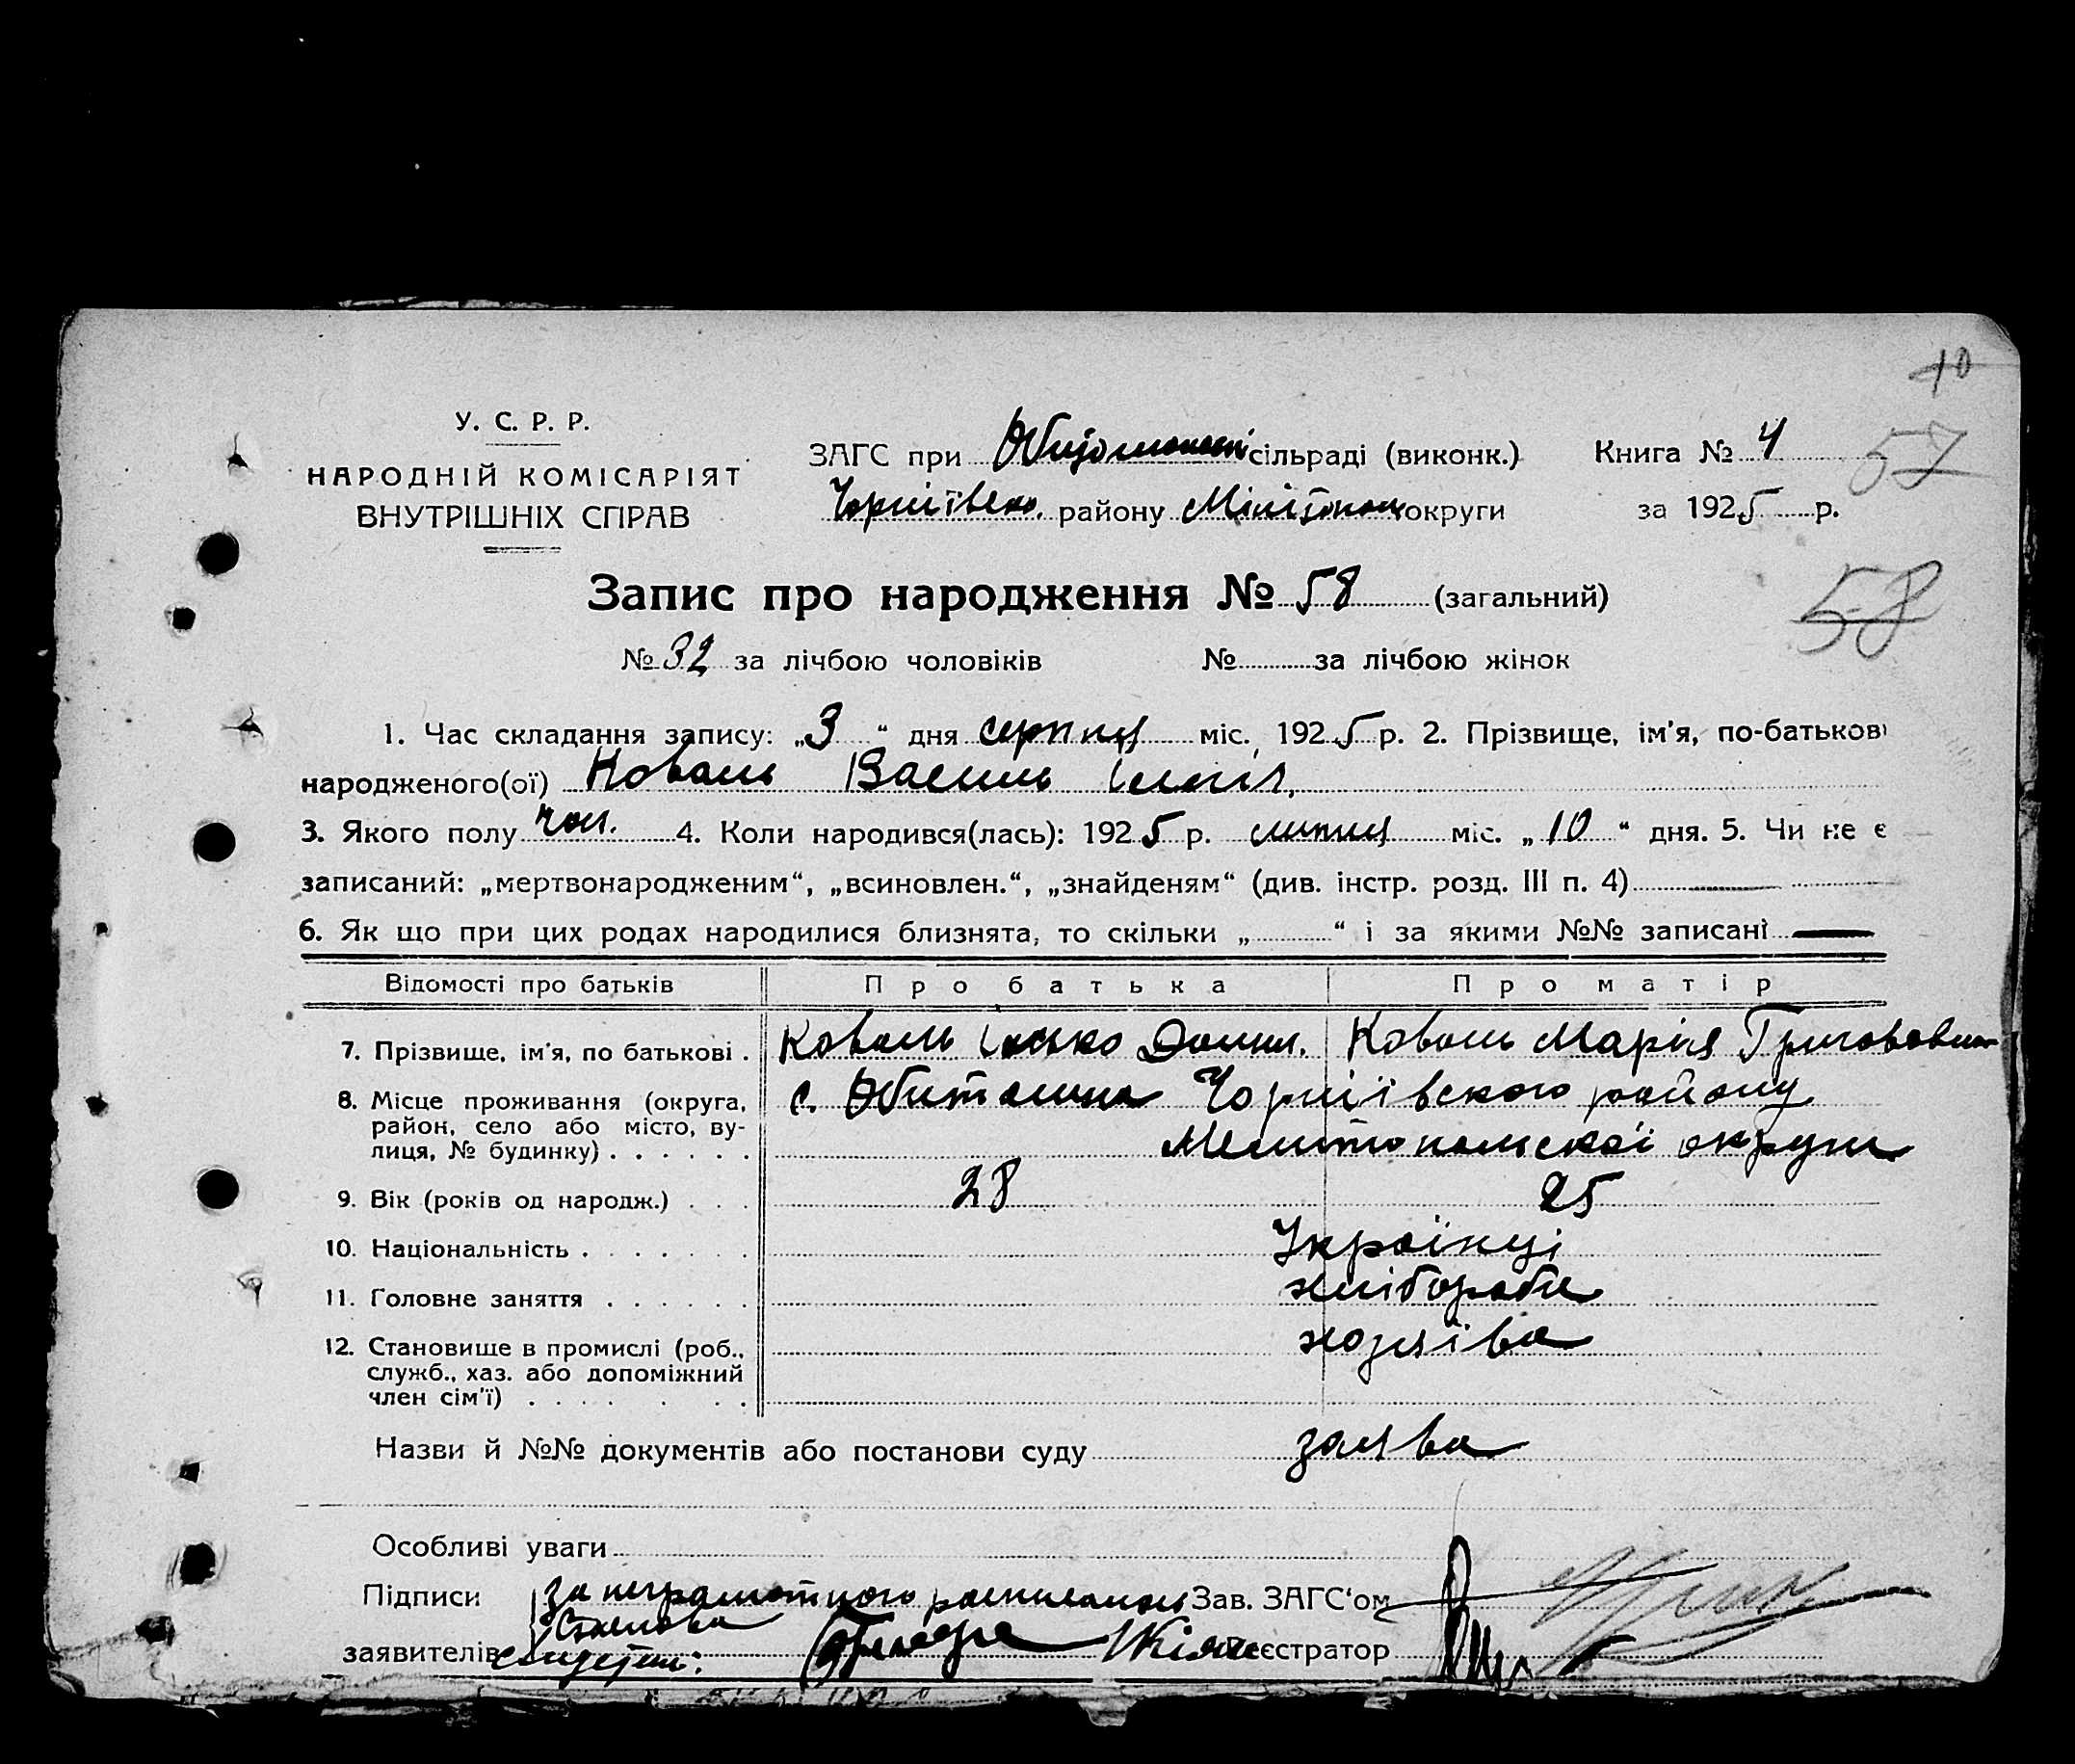 10
У. С. Р. Р.
НАРОДНІЙ КОМІСАРІЯТ
ВНУТРІШНІХ СПРАВ
ЗАГС при сільраді (виконк.) Книга № 4 57
району округи за 1925 р.
Запис про народження № 58 (загальний) 58
№ 32 за лічбою чоловіків № за лічбою жінок
1. Час складання запису: „3“ дня серпня міс. 1925 р. 2. Прізвище, ім'я, по-батькові
народженого(ої) Коваль Василь
3. Якого полу чол. 4. Коли народився(лась): 1925 р. липня міс. „10“ дня. 5. Чи не є
записаний: „мертвонародженим“, „всиновлен.“, „знайденям“ (див. інстр. розд. III п. 4)
6. Як що при цих родах народилися близнята, то скільки „ “ і за якими №№ записані —
Відомості про батьків Про батька Про матір
7. Прізвище, ім'я, по батькові . Коваль Коваль Марія
8. Місце проживання (округа, с. Чорніївского району
район, село або місто, ву- Мелитопольскої округи
лиця, № будинку) . . . . . .
9. Вік (років од народж.) . . . 28 25
10. Національність . . . . . . . Українці
11. Головне заняття . . . . . . хлібороби
12. Становище в промислі (роб., хозяіва
служб., хаз. або допоміжний
член сім'ї) . . . . . . .
Назви й №№ документів або постанови суду заява
Особливі уваги
Підписи за неграмотного Зав. ЗАГС‘ом
заявителів єстратор